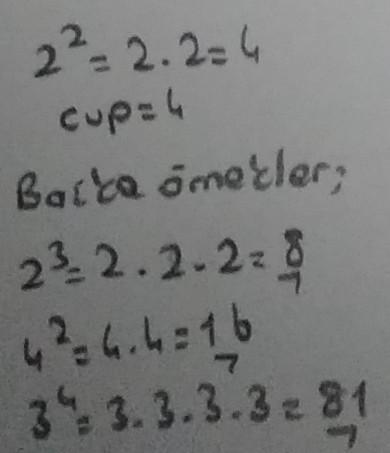 2² = 2 . 2 = 4
cvp = 4
Başka örnekler;
2³ = 2 . 2 . 2 = 8
4² = 4 . 4 = 16
3⁴ = 3 . 3 . 3 . 3 = 81